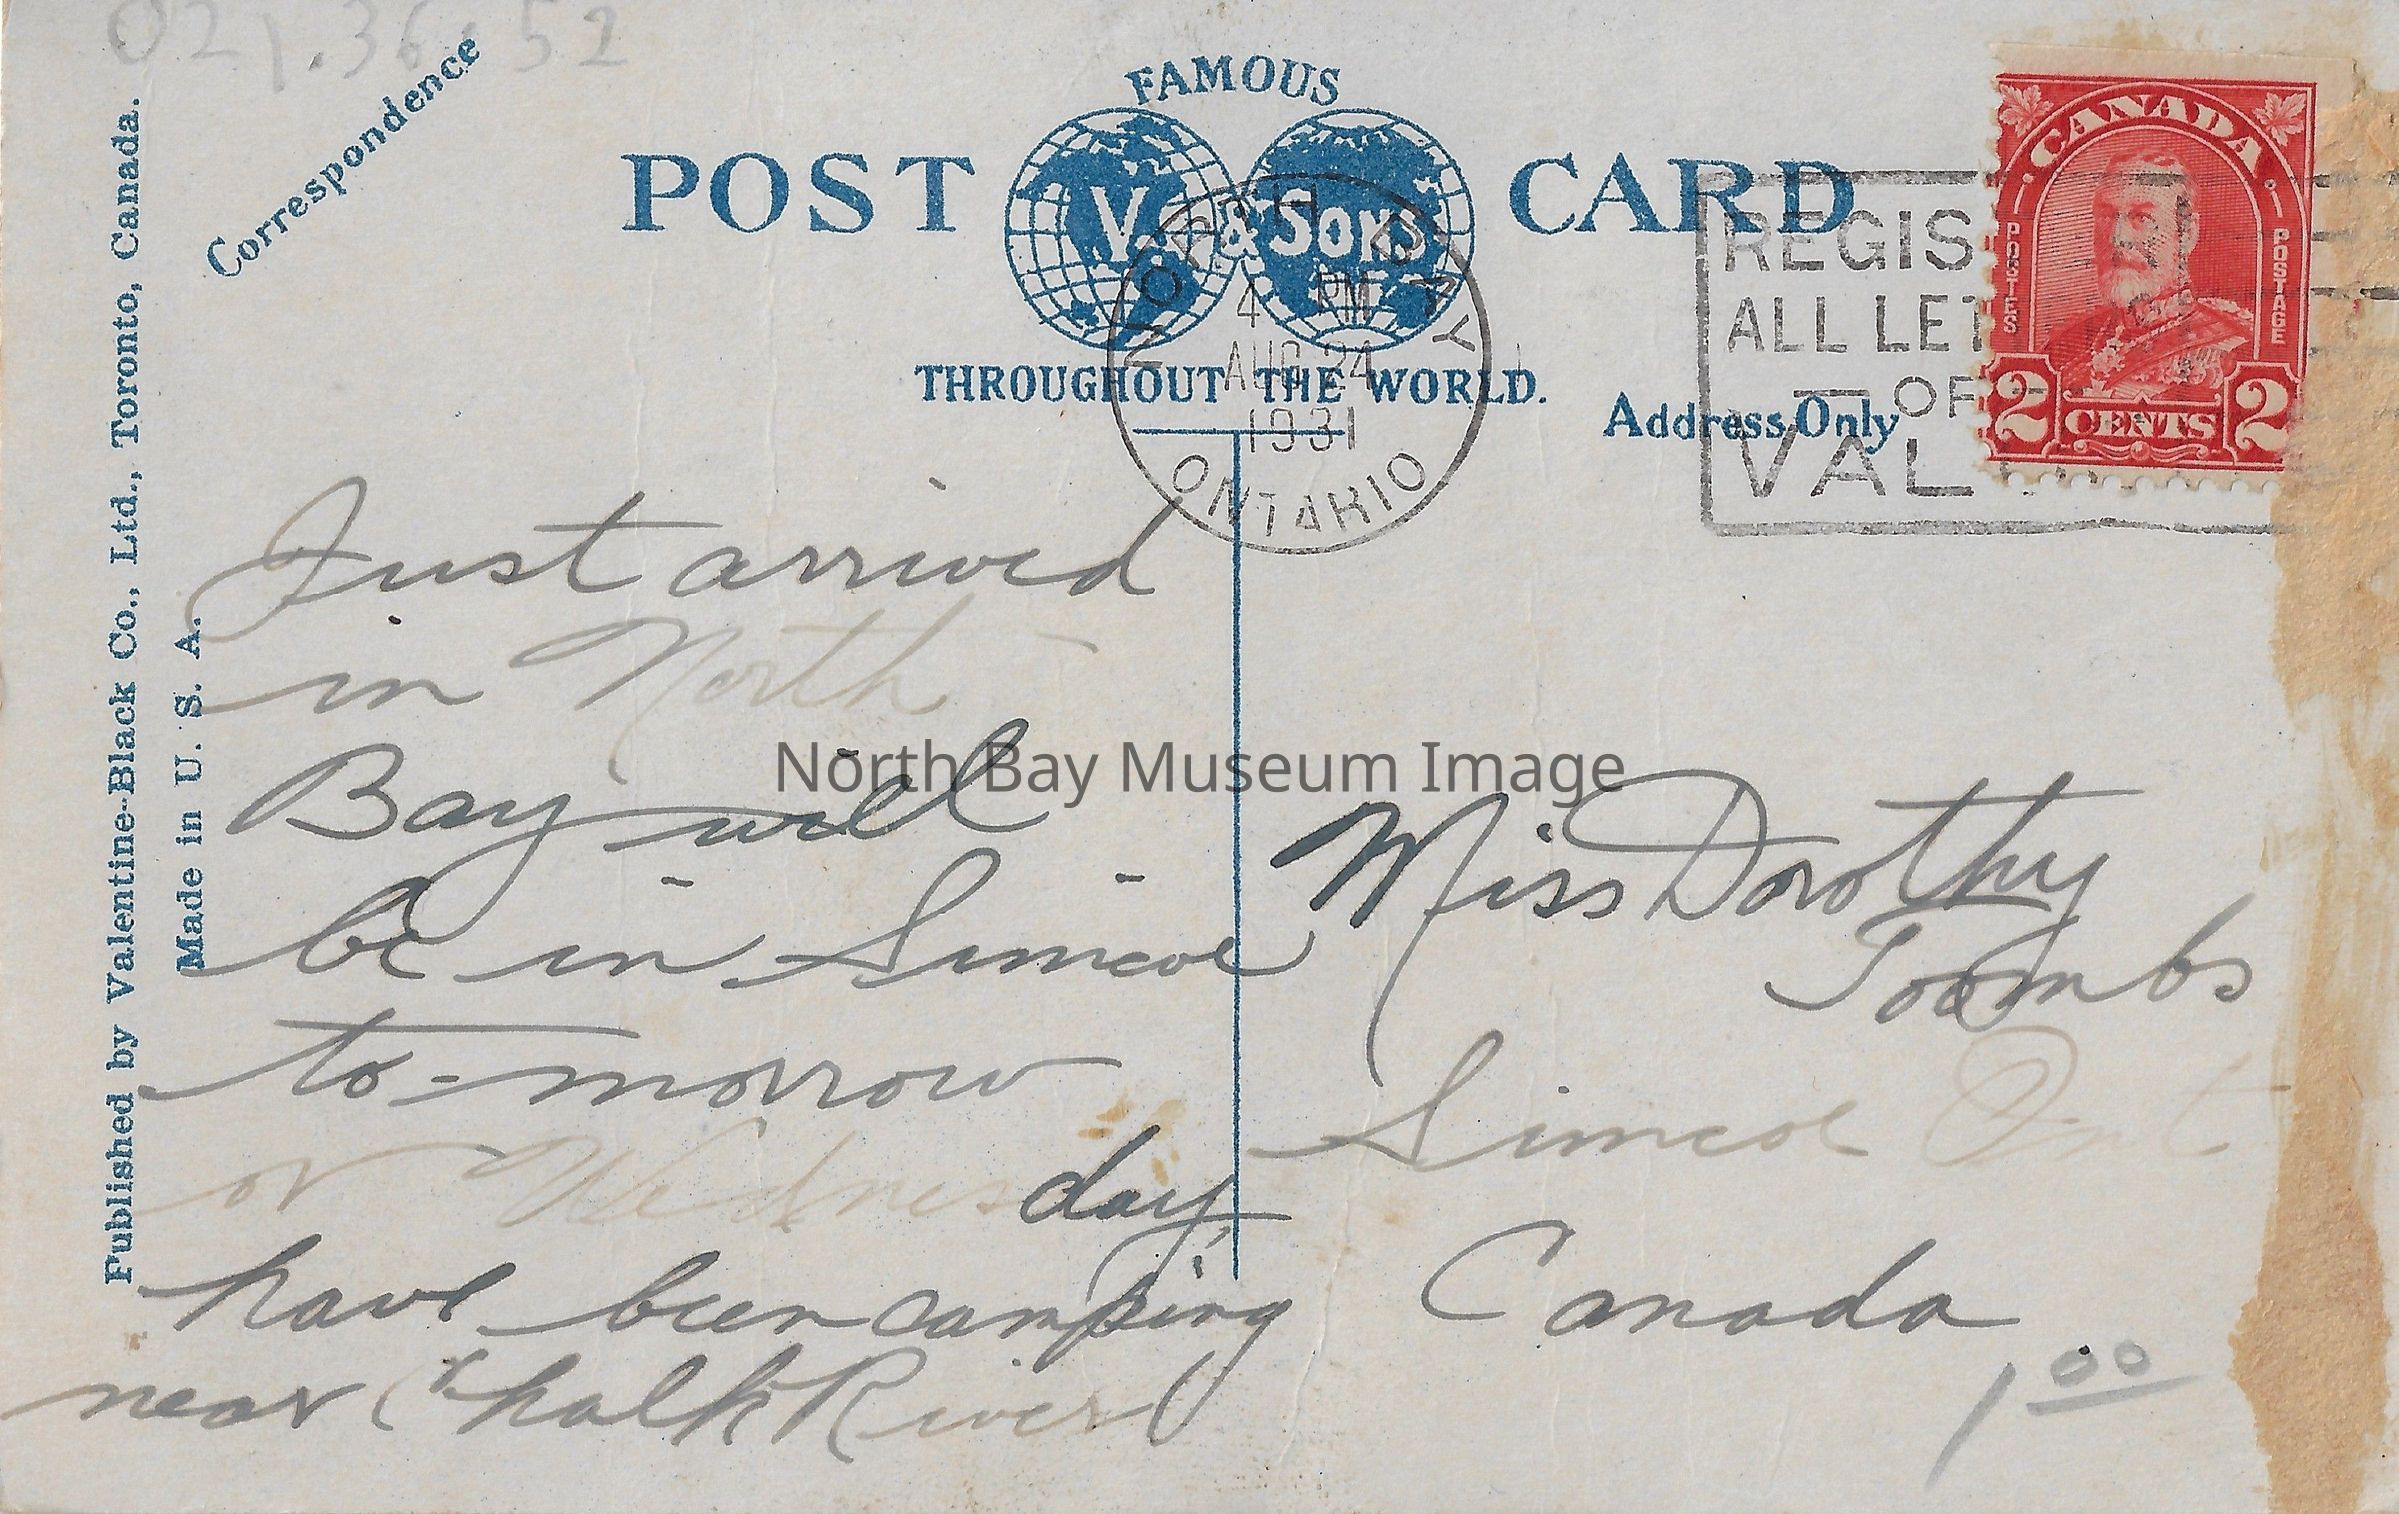 021.36.52
Correspondence
FAMOUS
POST CARD
V. & Sons
THROUGHOUT THE WORLD.
Address Only
NORTH BAY
4 PM
AUG 24
1931
ONTARIO
REGIS
ALL LET
OF
VAL
CANADA
POSTES
POSTAGE
2 CENTS 2
Published by Valentine-Black Co., Ltd., Toronto, Canada.
Made in U. S. A.
Just arrived
in North
Bay will
be in Simcoe
to-morrow
or Wednesday,
have been camping
near Chalk River
North Bay Museum Image
Miss Dorothy
Toombs
Simcoe Ont
Canada
1 00